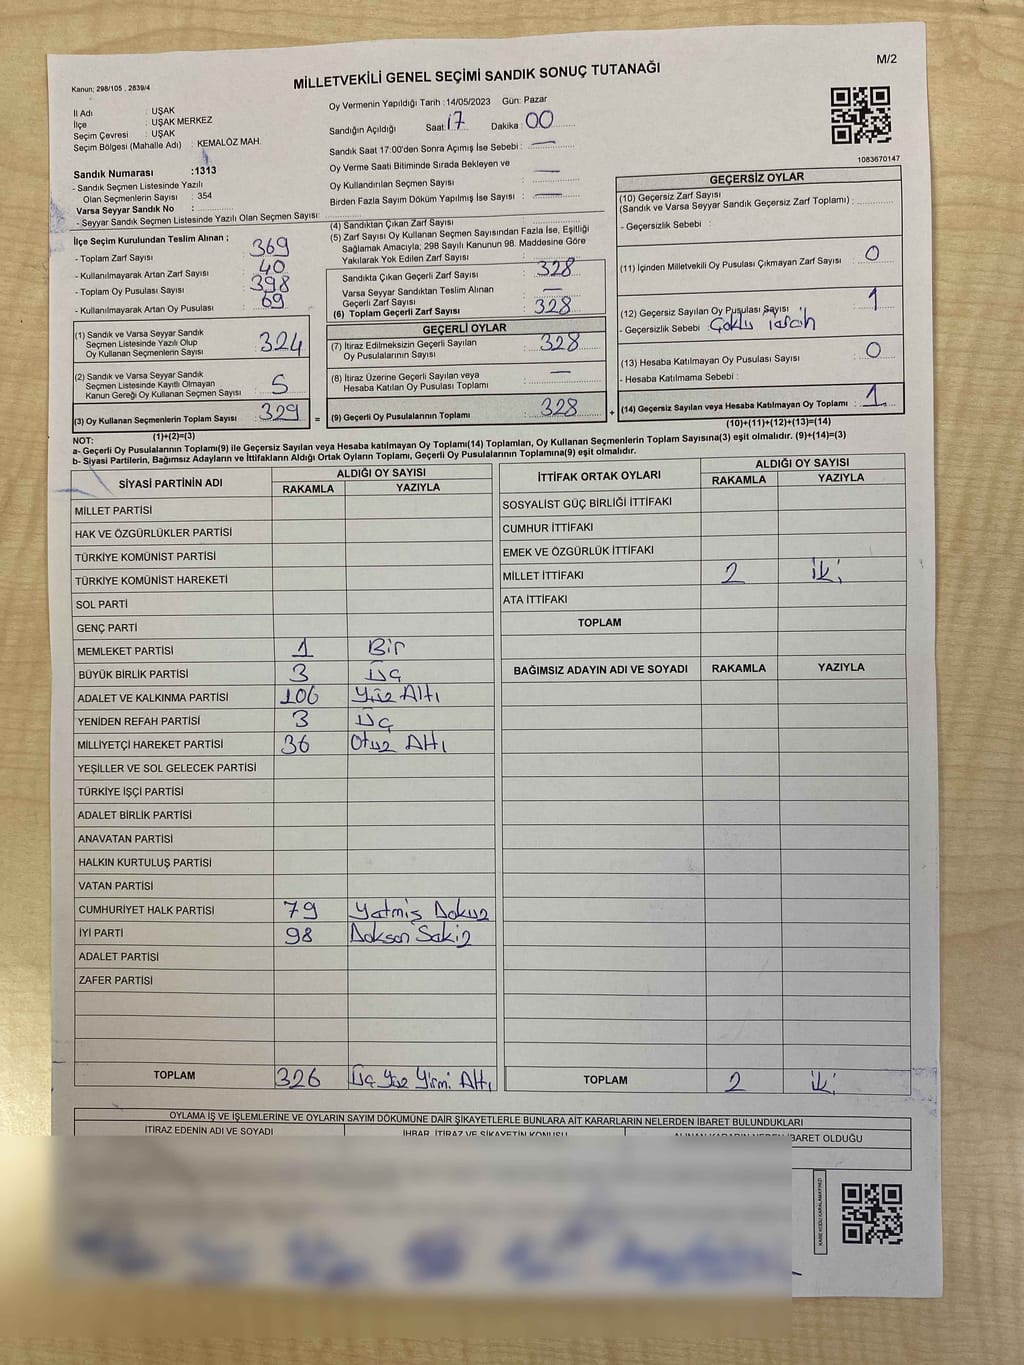 M/2
Kanun; 298/105 , 2839/4
MİLLETVEKİLİ GENEL SEÇİMİ SANDIK SONUÇ TUTANAĞI
İl Adı : UŞAK
İlçe : UŞAK MERKEZ
Seçim Çevresi : UŞAK
Seçim Bölgesi (Mahalle Adı) : KEMALÖZ MAH.
Sandık Numarası :1313
- Sandık Seçmen Listesinde Yazılı
Olan Seçmenlerin Sayısı : 354
Varsa Seyyar Sandık No :
- Seyyar Sandık Seçmen Listesinde Yazılı Olan Seçmen Sayısı:
Oy Vermenin Yapıldığı Tarih :14/05/2023 Gün: Pazar
Sandığın Açıldığı Saat:17 Dakika :00
Sandık Saat 17:00'den Sonra Açımış İse Sebebi : —
Oy Verme Saati Bitiminde Sırada Bekleyen ve
Oy Kullandırılan Seçmen Sayısı : —
Birden Fazla Sayım Döküm Yapılmış İse Sayısı : —
1083670147
İlçe Seçim Kurulundan Teslim Alınan ;
- Toplam Zarf Sayısı : 369
- Kullanılmayarak Artan Zarf Sayısı : 40
- Toplam Oy Pusulası Sayısı : 398
- Kullanılmayarak Artan Oy Pusulası : 69
(1) Sandık ve Varsa Seyyar Sandık
Seçmen Listesinde Yazılı Olup
Oy Kullanan Seçmenlerin Sayısı : 324
(2) Sandık ve Varsa Seyyar Sandık
Seçmen Listesinde Kayıtlı Olmayan
Kanun Gereği Oy Kullanan Seçmen Sayısı : 5
(3) Oy Kullanan Seçmenlerin Toplam Sayısı : 329 =
(1)+(2)=(3)
(4) Sandıktan Çıkan Zarf Sayısı :
(5) Zarf Sayısı Oy Kullanan Seçmen Sayısından Fazla İse, Eşitliği
Sağlamak Amacıyla; 298 Sayılı Kanunun 98. Maddesine Göre
Yakılarak Yok Edilen Zarf Sayısı :
Sandıkta Çıkan Geçerli Zarf Sayısı : 328
Varsa Seyyar Sandıktan Teslim Alınan
Geçerli Zarf Sayısı : —
(6) Toplam Geçerli Zarf Sayısı : 328
GEÇERLİ OYLAR
(7) İtiraz Edilmeksizin Geçerli Sayılan
Oy Pusulalarının Sayısı : 328
(8) İtiraz Üzerine Geçerli Sayılan veya
Hesaba Katılan Oy Pusulası Toplamı : —
(9) Geçerli Oy Pusulalarının Toplamı : 328 +
GEÇERSİZ OYLAR
(10) Geçersiz Zarf Sayısı
(Sandık ve Varsa Seyyar Sandık Geçersiz Zarf Toplamı) :
- Geçersizlik Sebebi :
(11) İçinden Milletvekili Oy Pusulası Çıkmayan Zarf Sayısı : 0
(12) Geçersiz Sayılan Oy Pusulası Sayısı : 1
- Geçersizlik Sebebi Çoklu Tercih
(13) Hesaba Katılmayan Oy Pusulası Sayısı : 0
- Hesaba Katılmama Sebebi :
(14) Geçersiz Sayılan veya Hesaba Katılmayan Oy Toplamı : 1
(10)+(11)+(12)+(13)=(14)
NOT:
a- Geçerli Oy Pusulalarının Toplamı(9) ile Geçersiz Sayılan veya Hesaba katılmayan Oy Toplamı(14) Toplamları, Oy Kullanan Seçmenlerin Toplam Sayısına(3) eşit olmalıdır. (9)+(14)=(3)
b- Siyasi Partilerin, Bağımsız Adayların ve İttifakların Aldığı Ortak Oyların Toplamı, Geçerli Oy Pusulalarının Toplamına(9) eşit olmalıdır.
SİYASİ PARTİNİN ADI ALDIĞI OY SAYISI
RAKAMLA YAZIYLA
MİLLET PARTİSİ
HAK VE ÖZGÜRLÜKLER PARTİSİ
TÜRKİYE KOMÜNİST PARTİSİ
TÜRKİYE KOMÜNİST HAREKETİ
SOL PARTİ
GENÇ PARTİ
MEMLEKET PARTİSİ 1 Bir
BÜYÜK BİRLİK PARTİSİ 3 Üç
ADALET VE KALKINMA PARTİSİ 106 Yüz Altı
YENİDEN REFAH PARTİSİ 3 Üç
MİLLİYETÇİ HAREKET PARTİSİ 36 Otuz Altı
YEŞİLLER VE SOL GELECEK PARTİSİ
TÜRKİYE İŞÇİ PARTİSİ
ADALET BİRLİK PARTİSİ
ANAVATAN PARTİSİ
HALKIN KURTULUŞ PARTİSİ
VATAN PARTİSİ
CUMHURİYET HALK PARTİSİ 79 Yetmiş Dokuz
İYİ PARTİ 98 Doksan Sekiz
ADALET PARTİSİ
ZAFER PARTİSİ
TOPLAM 326 Üç Yüz Yirmi Altı
İTTİFAK ORTAK OYLARI ALDIĞI OY SAYISI
RAKAMLA YAZIYLA
SOSYALİST GÜÇ BİRLİĞİ İTTİFAKI
CUMHUR İTTİFAKI
EMEK VE ÖZGÜRLÜK İTTİFAKI
MİLLET İTTİFAKI 2 İki
ATA İTTİFAKI
TOPLAM
BAĞIMSIZ ADAYIN ADI VE SOYADI RAKAMLA YAZIYLA
TOPLAM 2 İki
OYLAMA İŞ VE İŞLEMLERİNE VE OYLARIN SAYIM DÖKÜMÜNE DAİR ŞİKAYETLERLE BUNLARA AİT KARARLARIN NELERDEN İBARET BULUNDUKLARI
İTİRAZ EDENİN ADI VE SOYADI İHBAR, İTİRAZ VE ŞİKAYETİN KONUSU ALINAN KARARIN NEDEN İBARET OLDUĞU
KARE KODU KARALAMAYINIZ!